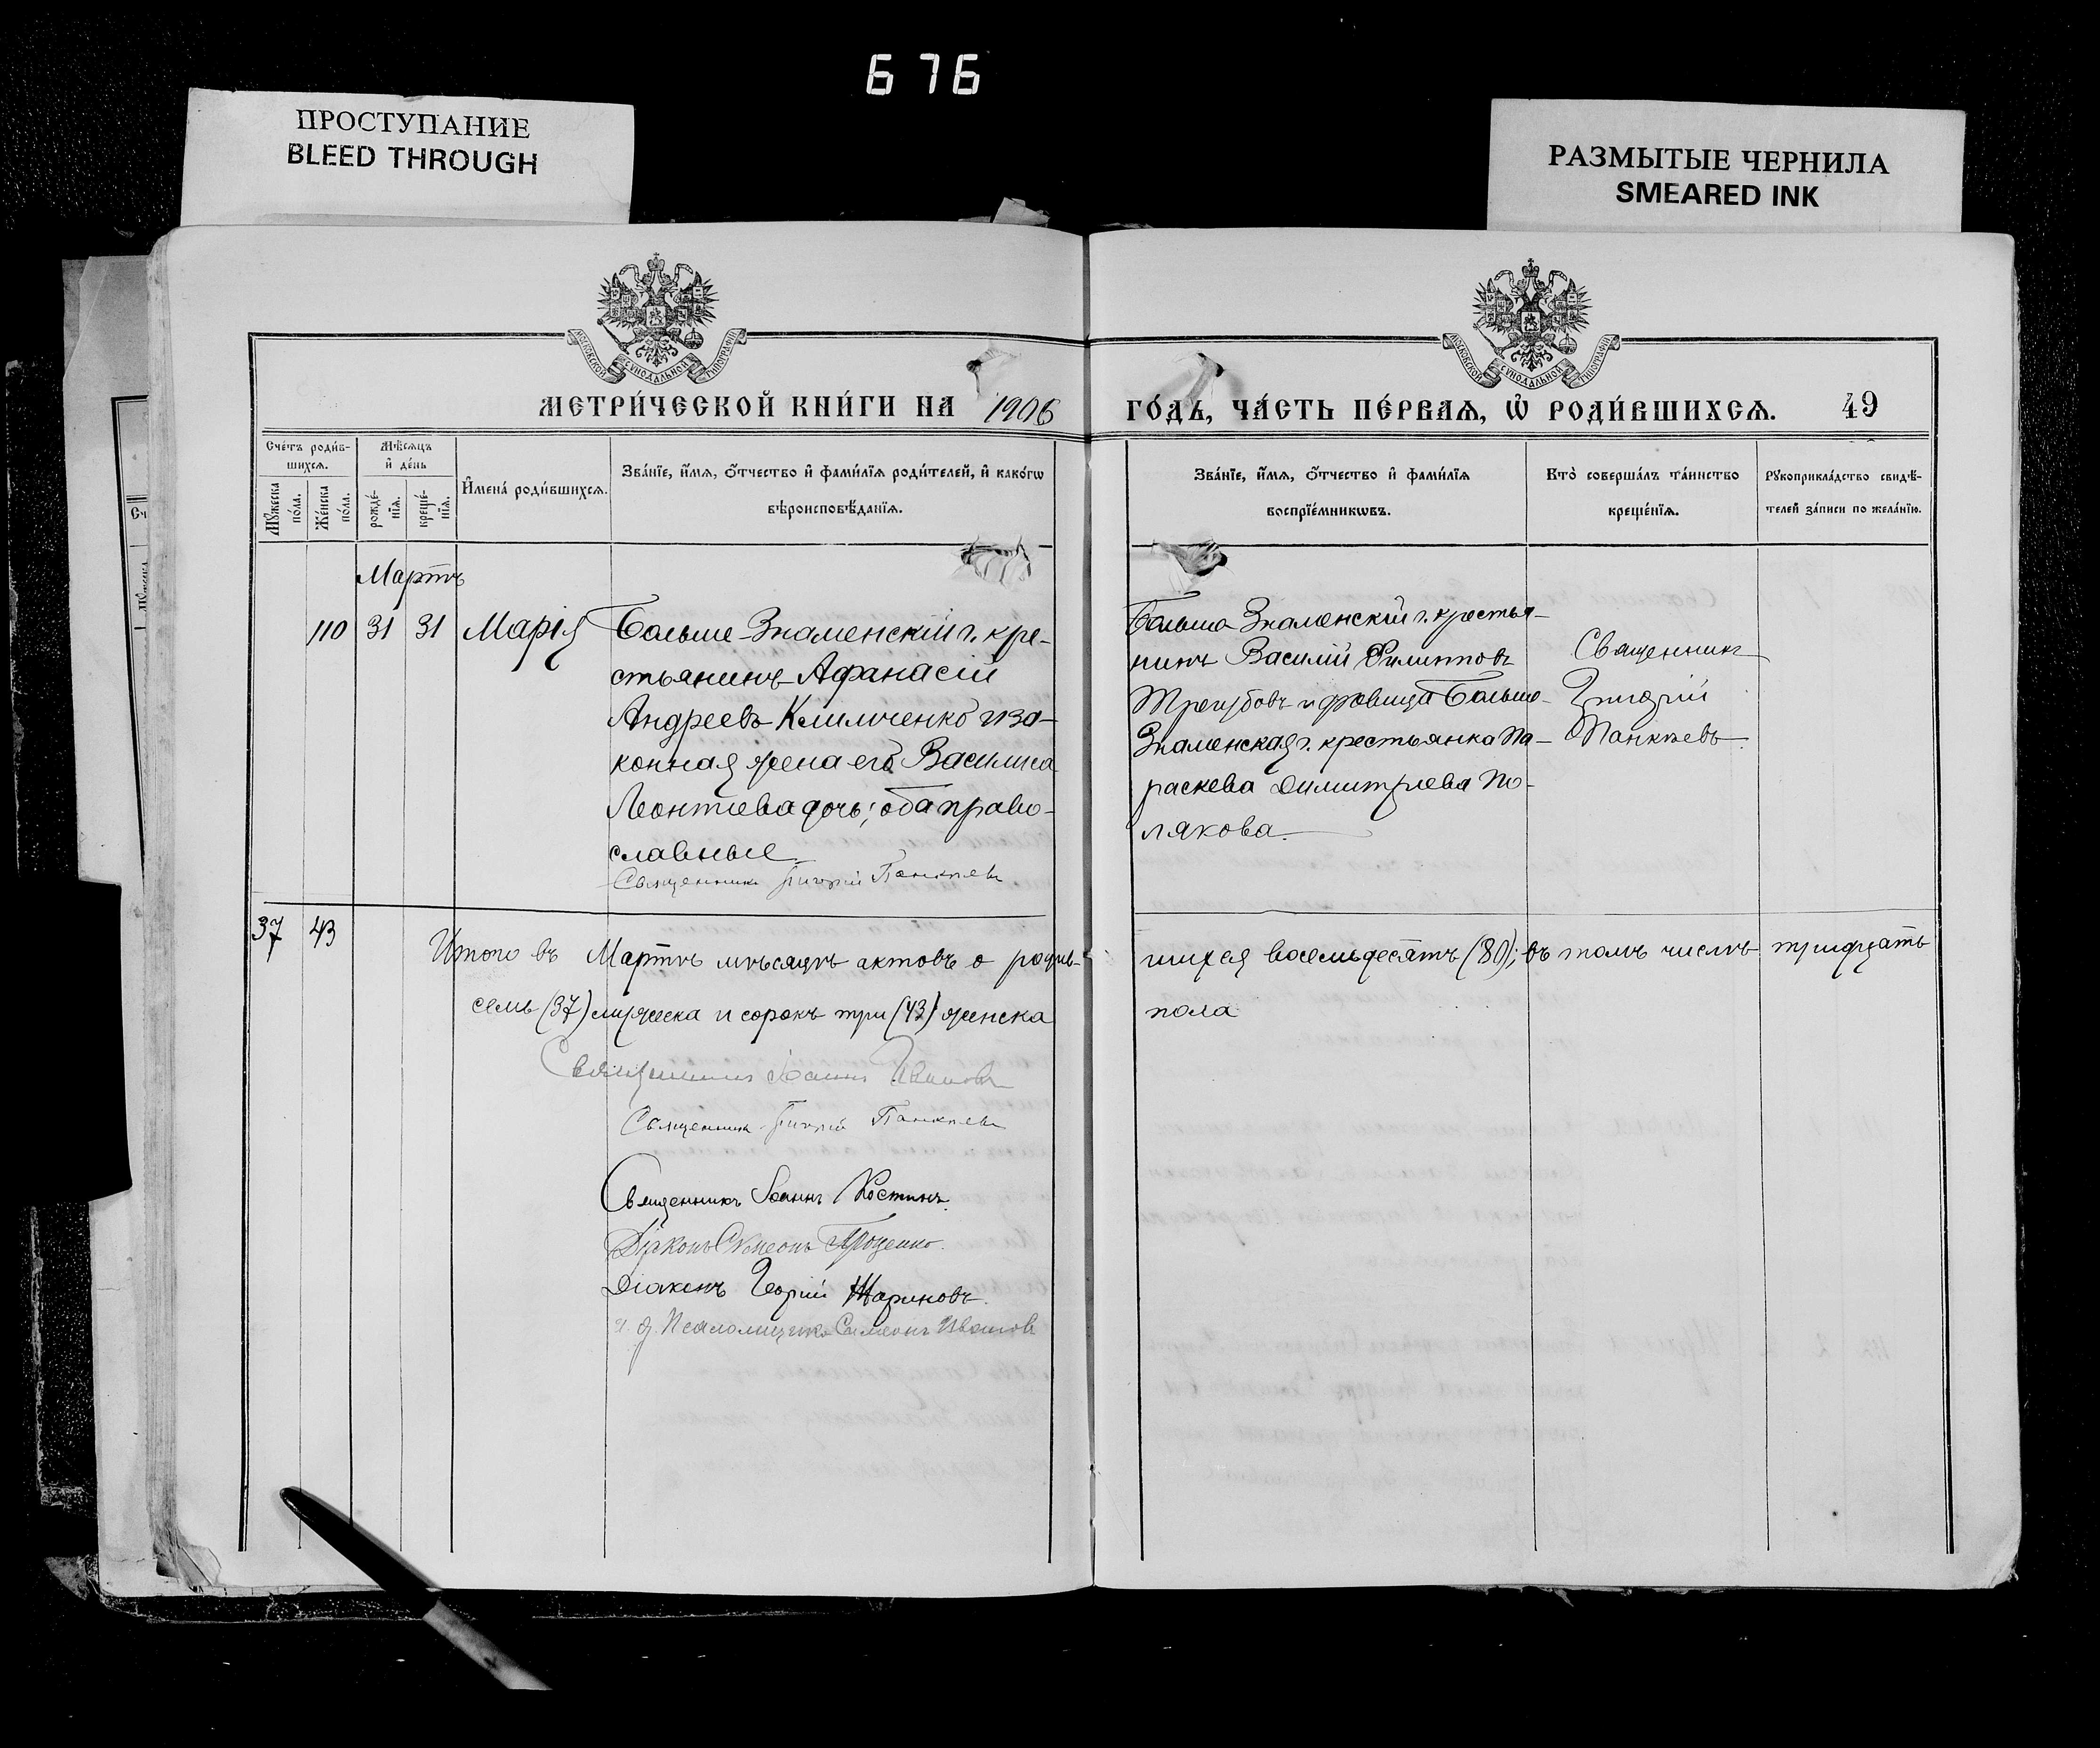 676
ПРОСТУПАНИЕ
BLEED THROUGH
РАЗМЫТЫЕ ЧЕРНИЛА
SMEARED INK
МОСКОВСКОЙ СѴНОДАЛЬНОЙ ТИПОГРАФІИ
МОСКОВСКОЙ СѴНОДАЛЬНОЙ ТИПОГРАФІИ
МЕТРИ́ЧЕСКОЙ КНИ́ГИ НА 1906
ГО́ДЪ, ЧА́СТЬ ПЕ́РВАѦ, Ѡ҆ РОДИ́ВШИХСѦ. 49
Сче́тъ роди́в-
шихсѧ.
Мꙋ́жеска по́ла.
Же́нска по́ла.
Мѣ́сѧцъ
и҆ де́нь
рожде́-
нїѧ.
креще́-
нїѧ.
И҆мена̀ роди́вшихсѧ.
Зва́нїе, и҆́мѧ, о҆́тчество и҆ фами́лїѧ роди́телей, и҆ како́гѡ
вѣроисповѣ́данїѧ.
Зва́нїе, и҆́мѧ, о҆́тчество и҆ фами́лїѧ
воспрїе́мникѡвъ.
Кто̀ соверша́лъ та́инство
креще́нїѧ.
Рꙋкоприкла́дство свидѣ́-
телей за́писи по жела́нїю.
Мартъ
110 31 31 Марія
Больше-Знаменскій г. кре-
стьянинъ Афанасій
Андреевъ Климченко и за-
конная жена его Василиса
Леонтьева дочь; оба право-
славные.
Священникъ Григорій Панкѣевъ
Больше Знаменскій г. крестья-
нинъ Василій Филипповъ
Трегубовъ и девица Больше-
Знаменская г. крестьянка Па-
раскева Димитріева По-
лякова.
Священникъ
Григорій
Панкѣевъ.
37 43
Итого въ Мартѣ мѣсяцѣ актовъ о родив-
шихся восемьдесятъ (80); въ томъ числѣ тридцать
семь (37) мужеска и сорокъ три (43) женска
пола
Священникъ Іоаннъ Ивановъ
Священникъ Григорій Панкѣевъ
Священникъ Іоаннъ Костинъ.
Діаконъ Симеонъ Проценко.
Діаконъ Георгій Жариновъ.
и. д. Псаломщика Симеонъ Ивановъ